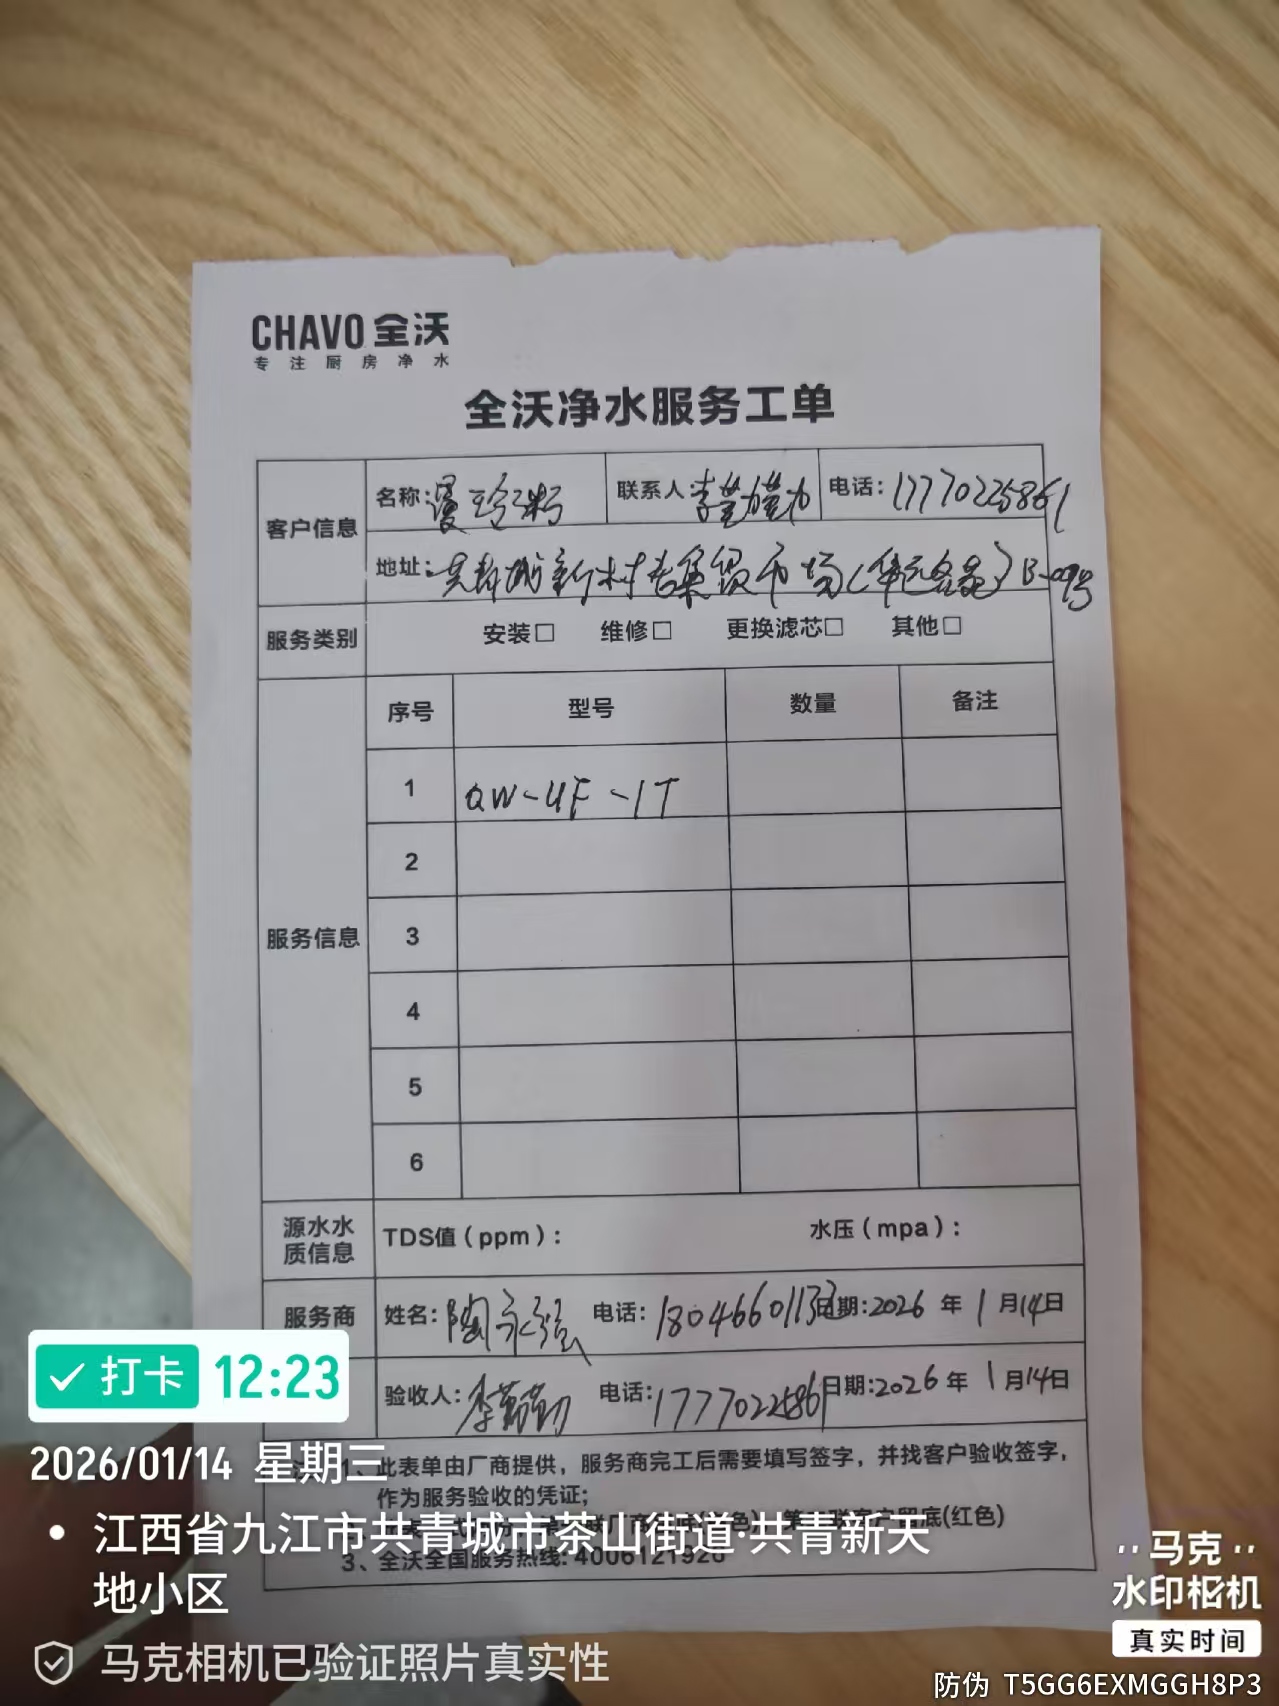 CHAVO 全沃
专注厨房净水
全沃净水服务工单
客户信息 名称: 联系人: 李 电话: 17770225861
地址: 新村 市场 B-09号
服务类别 安装□ 维修□ 更换滤芯□ 其他□
服务信息 序号 型号 数量 备注
1 QW-UF-1T
2
3
4
5
6
源水水质信息 TDS值(ppm): 水压(mpa):
服务商 姓名: 陶永强 电话: 18046601133 日期: 2026 年 1 月 14 日
验收人: 李勤勤 电话: 17770225861 日期: 2026 年 1 月 14 日
1、此表单由厂商提供，服务商完工后需要填写签字，并找客户验收签字，
作为服务验收的凭证；
底(红色)
3、全沃全国服务热线: 4006121926
打卡 12:23
2026/01/14 星期三
• 江西省九江市共青城市茶山街道·共青新天
地小区
马克相机已验证照片真实性
马克
水印相机
真实时间
防伪 T5GG6EXMGGH8P3